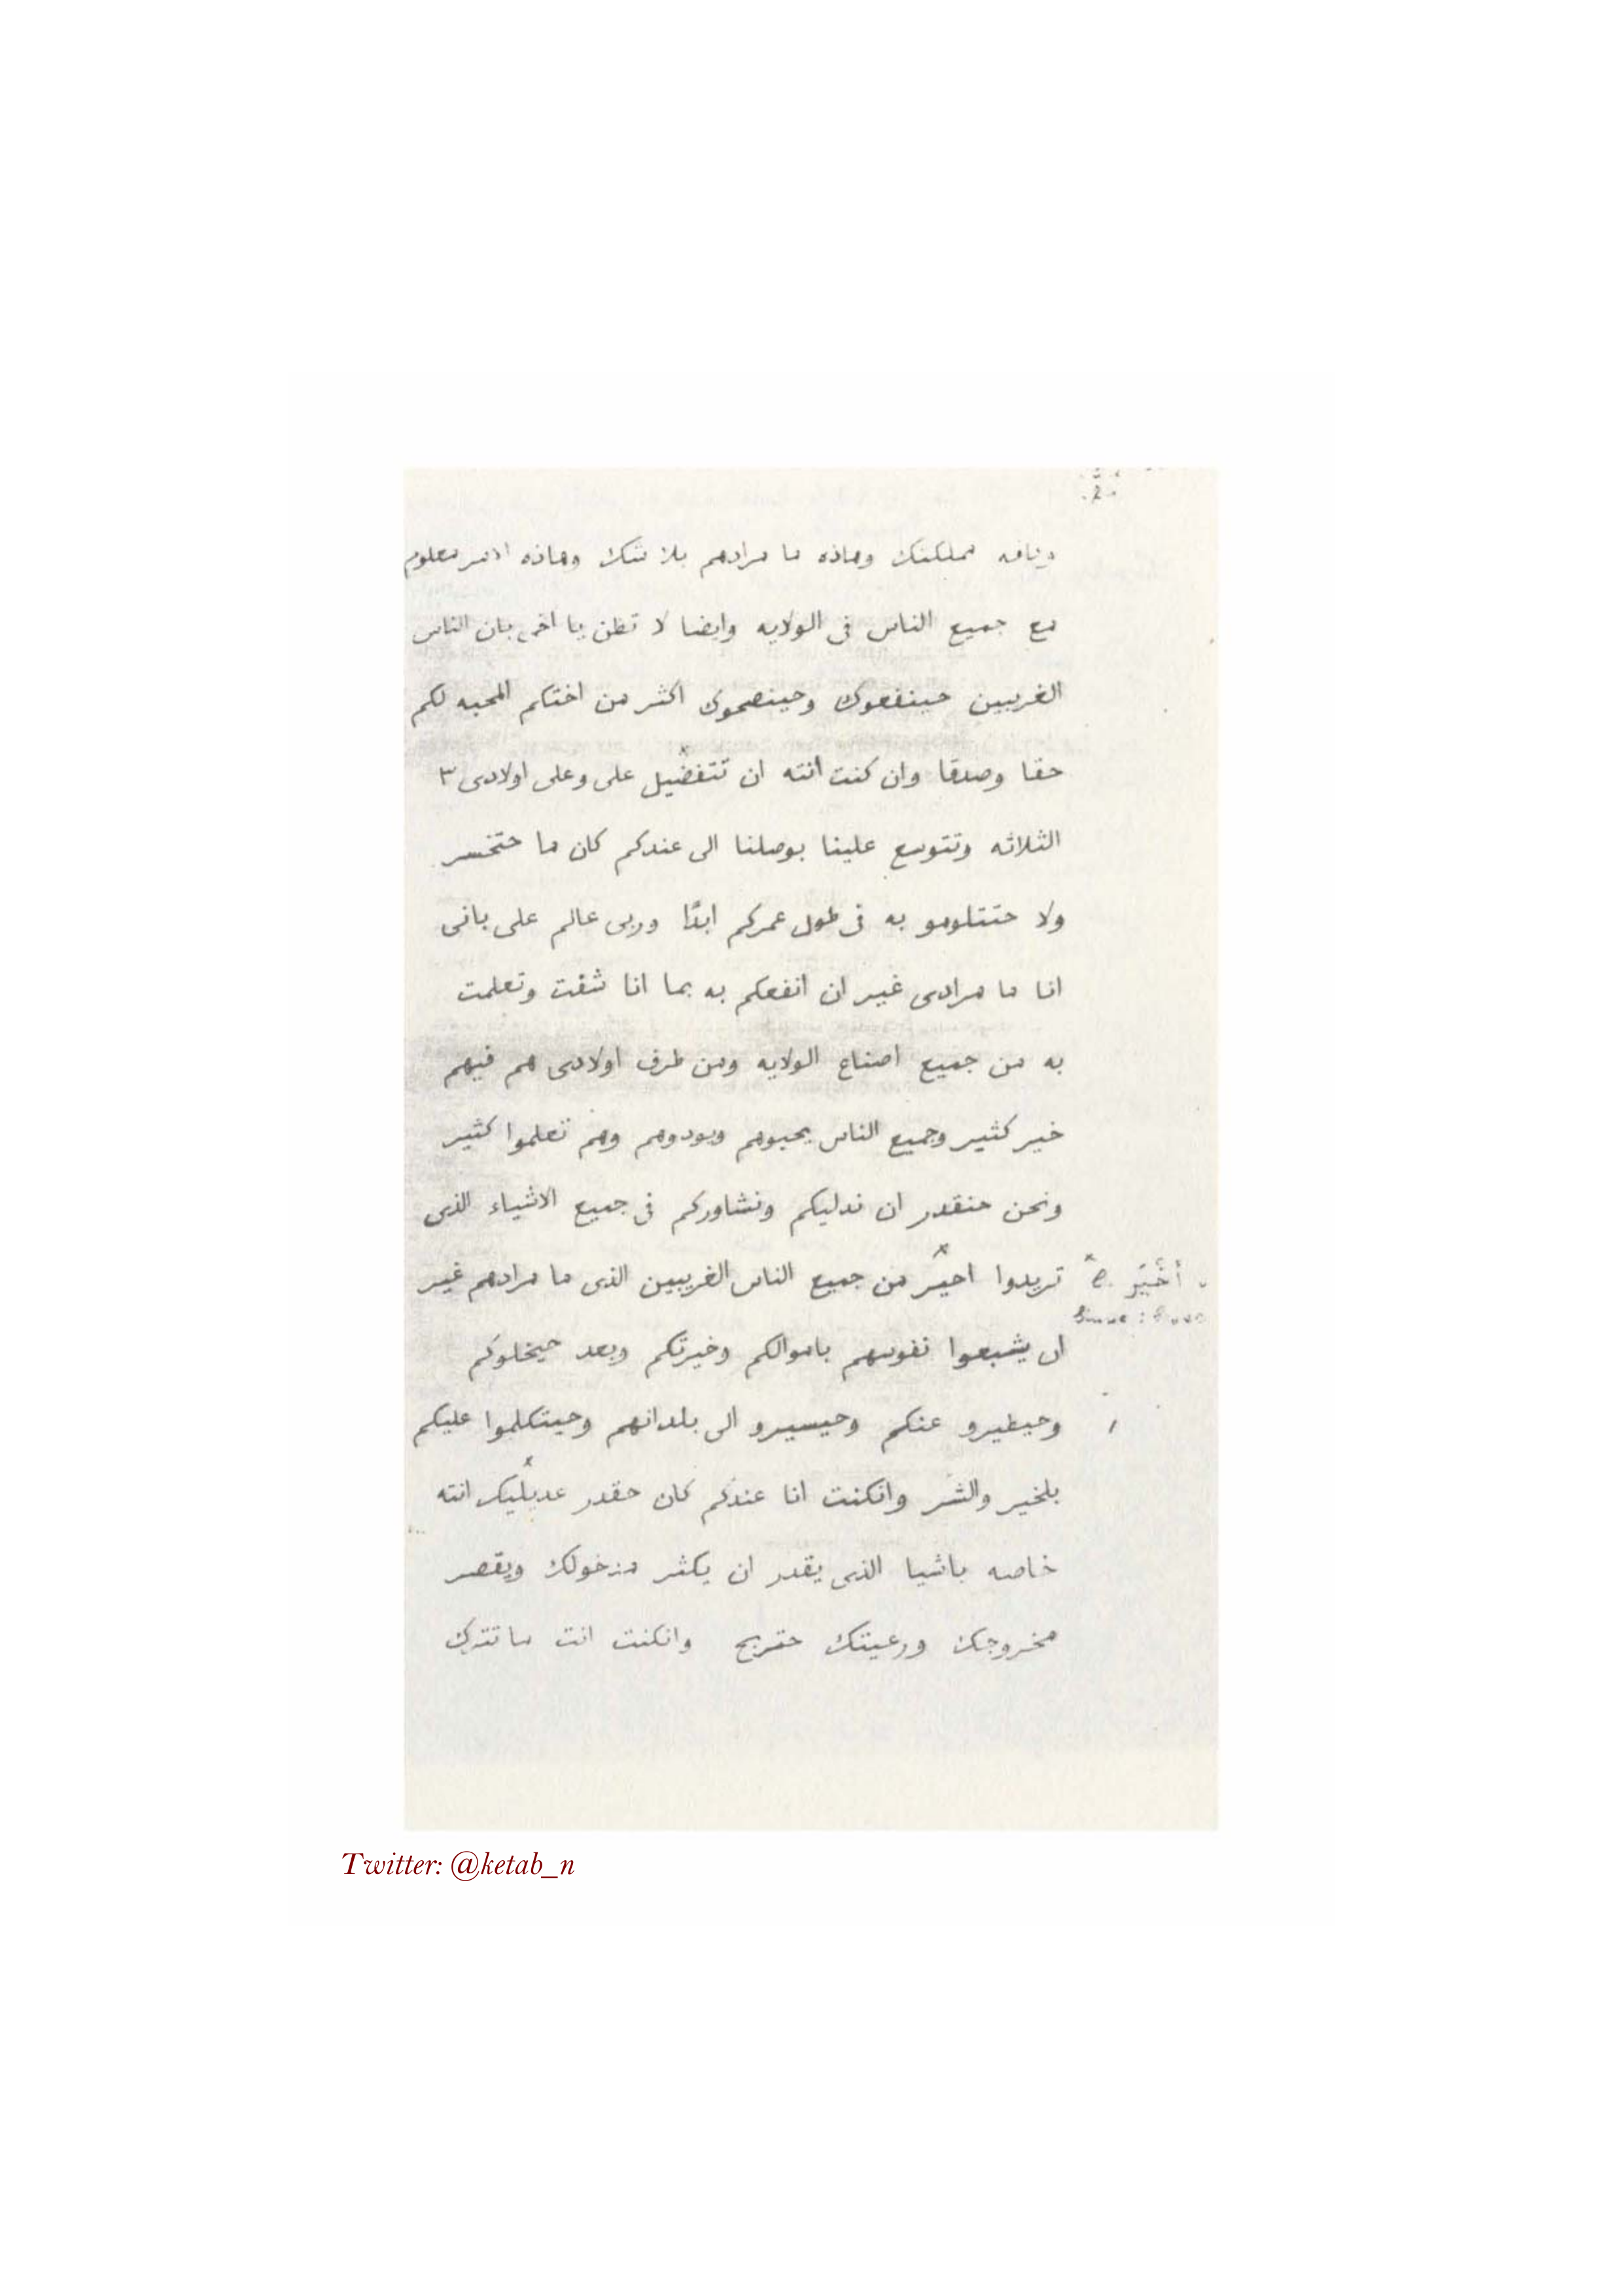 .2.
ويافه مملكتك وهاذه ما مرادهم بلا شك وهاذه الامر معلوم
مع جميع الناس فى الولايه وايضا لا تظن يا اخى بان الناس
الغريبين حينفعوك وحينصحوك اكثر من اختكم المحبه لكم
حقا وصدقا وان كنت انته ان تتفضيل على وعلى اولادى ٣
الثلاثه وتتوسع علينا بوصلنا الى عندكم كان ما حتخسر
ولا حتتلومو به فى طول عمركم ابدًا وربى عالم على بانى
انا ما مرادى غير ان انفعكم به بما انا شفت وتعلمت
به من جميع اصناع الولايه ومن طرف اولادى هم فيهم
خير كثير وجميع الناس يحبوهم ويودوهم وهم تعلموا كثير
ونحن حنقدر ان ندليكم ونشاوركم فى جميع الاشياء الذى
تريدوا اخيَر من جميع الناس الغريبين الذى ما مرادهم غير
أَخْيَر
ان يشبعوا نفوسهم باموالكم وخيرتكم وبعد حيخلوكم
وحيطيرو عنكم وحيسيرو الى بلدانهم وحيتكلموا عليكم
بلخير والشر وانكنت انا عندكم كان حقدر عديليك انته
خاصه باشيا الذى يقدر ان يكثر مدخولك ويقصر
مخروجك ورعيتك حتربح وانكنت انت ما تترك
Twitter: @ketab_n